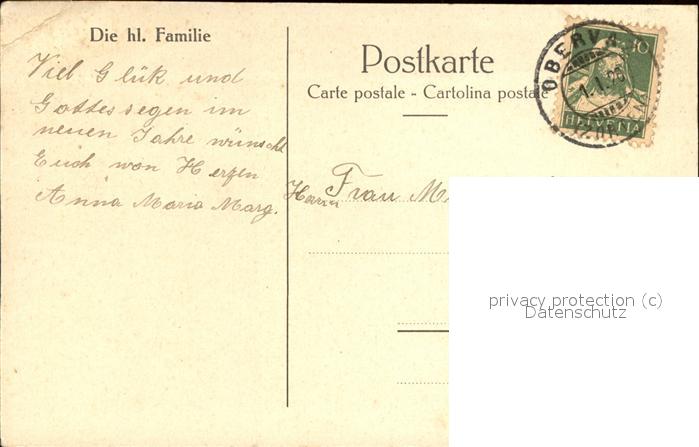 Die hl. Familie
Viel Glük und
Gottessegen im
neuen Jahre wünscht
Euch von Herzen
Anna Maria Marg.
Postkarte
Carte postale - Cartolina postale
Frau
10
HELVETIA
OBERVA
1.I.26
privacy protection (c)
Datenschutz